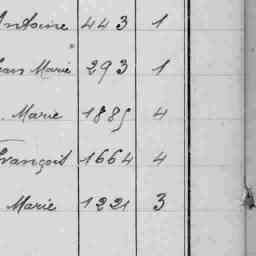 Antoine 443 1
Jean Marie 293 1
. Marie 1885 4
François 1664 4
Marie 1221 3